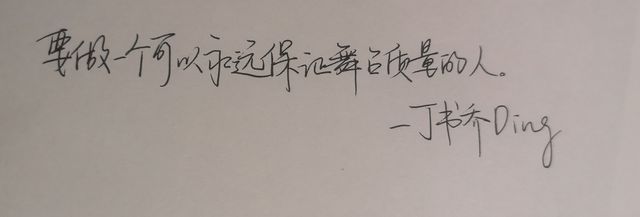 要做一个可以永远保证舞台质量的人。
—丁书乔Ding